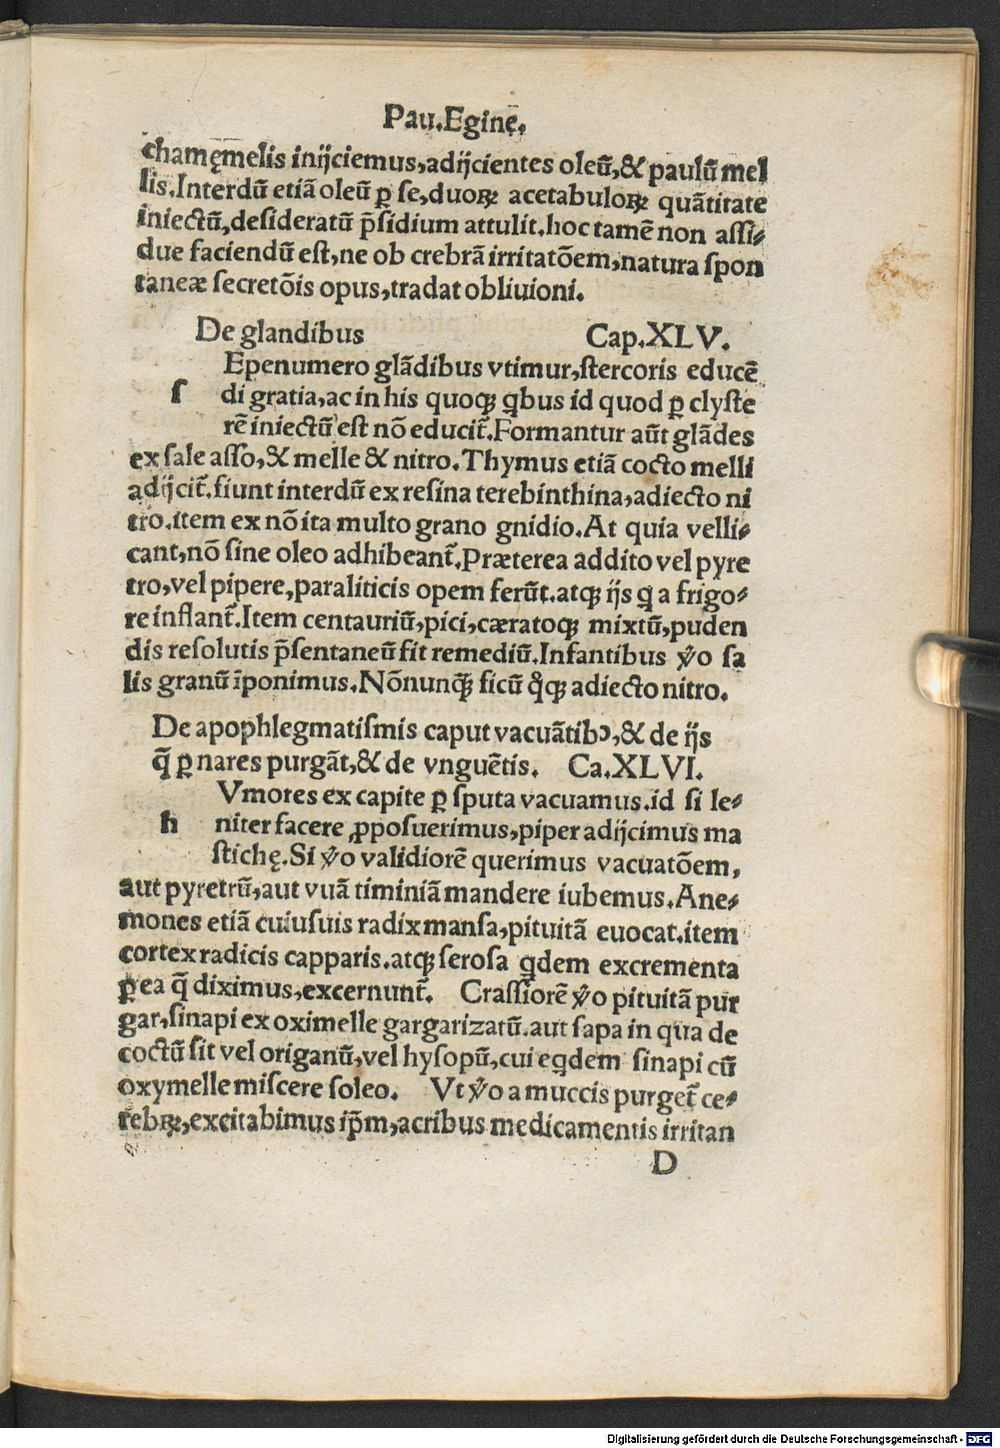 Pau.Eginę.
chamęmelis inijciemus,adijcientes oleū,&paulū mel
lis.Interdū etiā oleū ꝑ se,duoꝝ acetabuloꝝ quātitate
iniectū,desideratū p̄sidium attulit.hoc tamē non assi⸗
due faciendū est,ne ob crebrā irritatōem,natura spon
taneæ secretōis opus,tradat obliuioni.
De glandibus Cap.XLV.
Epenumero glādibus vtimur,stercoris educē
s di gratia,ac in his quoqꝫ qbus id quod ꝑ clyste
rē iniectū est nō educit̄.Formantur aūt glādes
ex sale asso,& melle & nitro.Thymus etiā cocto melli
adijcit̄.fiunt interdū ex resina terebinthina,adiecto ni
tro.item ex nō ita multo grano gnidio.At quia velli⸗
cant,nō sine oleo adhibeant̄.Præterea addito vel pyre
tro,vel pipere,paraliticis opem ferūt.atqꝫ ijs q a frigo⸗
re inflant̄.Item centauriū,pici,cæratoqꝫ mixtū,puden
dis resolutis p̄sentaneū fit remediū.Infantibus v̆o sa
lis granū īponimus.Nōnunqꝫ̄ ficū qͥqꝫ adiecto nitro.
De apophlegmatismis caput vacuātibꝰ,& de ijs
q̄ ꝑ nares purgāt,& de vnguētis. Ca.XLVI.
Vmores ex capite ꝑ sputa vacuamus.id si le⸗
h niter facere ꝓposuerimus,piper adijcimus ma
stichę.Si v̆o validiorē querimus vacuatōem,
aut pyretrū,aut vuā timiniā mandere iubemus.Ane⸗
mones etiā cuiusuis radix mansa,pituitā euocat.item
cortex radicis capparis.atqꝫ serosa qdem excrementa
ꝑ ea q̄ diximus,excernunt̄. Crassiorē v̆o pituitā pur
gar,sinapi ex oximelle gargarizatū.aut sapa in qua de
coctū sit vel origanū,vel hysopū,cui eqdem sinapi cū
oxymelle miscere soleo. Vt v̆o a muccis purget̄ ce⸗
rebꝝ,excitabimus ip̄m,acribus medicamentis irritan
D
Digitalisierung gefördert durch die Deutsche Forschungsgemeinschaft - DFG